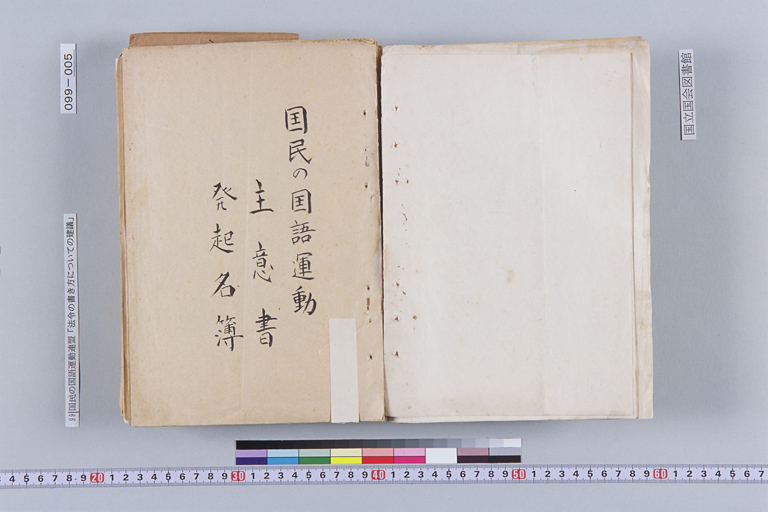 国民の国語運動
主意書
発起名簿
099-005
99国民の国語運動連盟「法令の書き方についての建議」
国立国会図書館
3 4 5 6 7 8 9 20 1 2 3 4 5 6 7 8 9 30 1 2 3 4 5 6 7 8 9 40 1 2 3 4 5 6 7 8 9 50 1 2 3 4 5 6 7 8 9 60 1 2 3 4 5 6 7